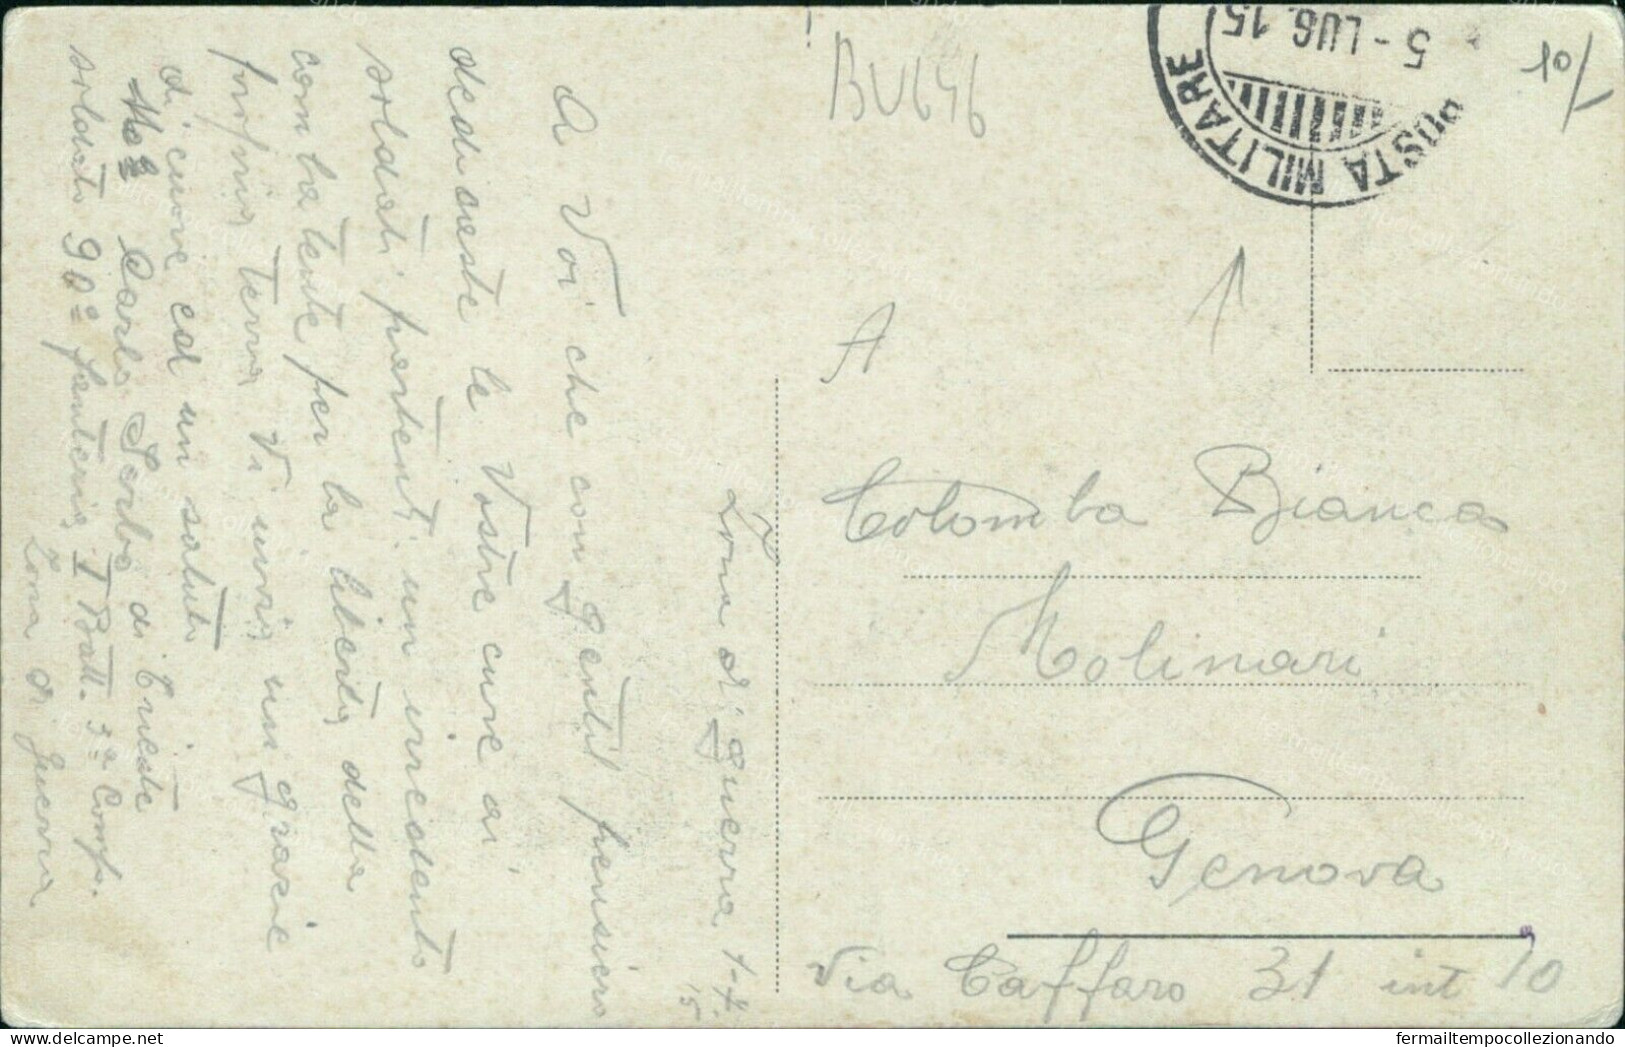 Zona di guerra 1-7-
15
A Voi che con gentil pensiero
dedicaste le Vostre cure ai
soldati partenti un irredento
combattente per la libertà della
propria terra Vi invia un grazie
di cuore ed un saluto
Carlo Serbo di Trieste
soldato 90º fanteria I Batt. 3ª Comp.
Zona di guerra
BU646
POSTA MILITARE
5 - LUG. 15
10/
1
A
Colomba Bianca
Molinari
Genova
Via Caffaro 31 int 10
fermailtempocollezionando